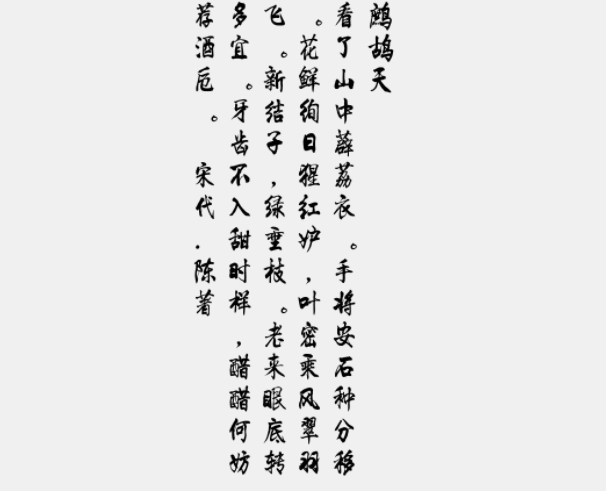 鹧鸪天
看了山中薜荔衣。手将安石种分移
。花鲜绚日猩红妒，叶密乘风翠羽
飞。新结子，绿垂枝。老来眼底转
多宜。牙齿不入甜时样，醋醋何妨
荐酒卮。 宋代.陈著